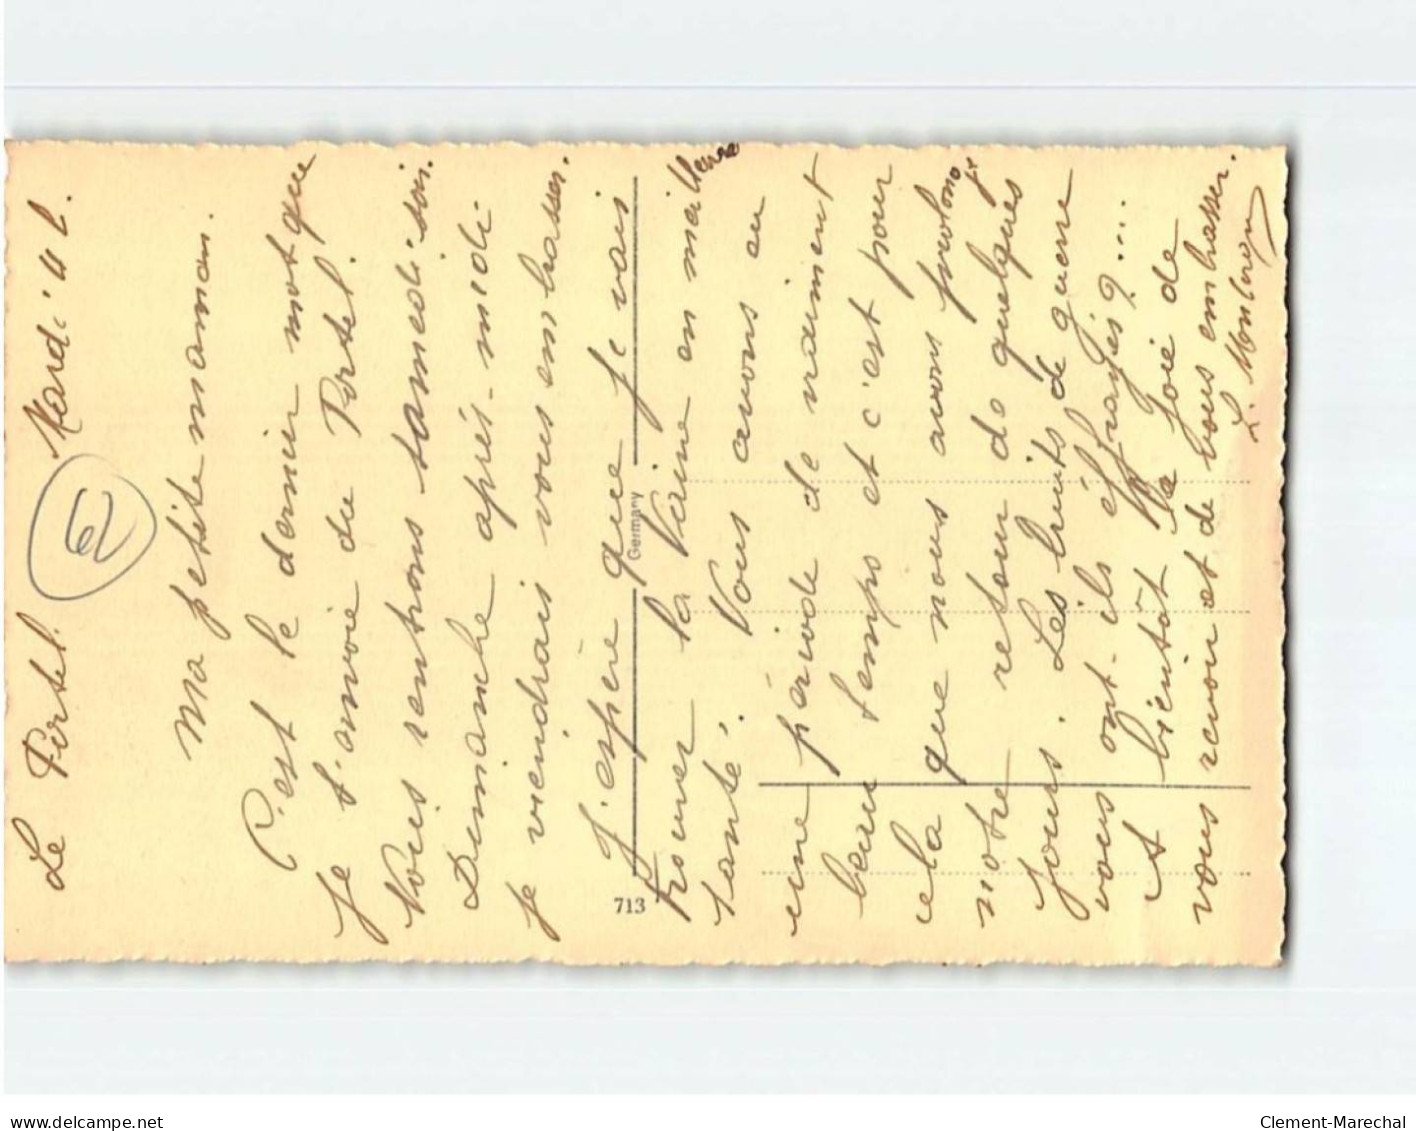 Le Portel. Mardi 4 h.
62
Ma petite maman.
C'est le dernier mot que
je t'envoie du Portel.
Nous rentrons samedi soir.
Dimanche après-midi
je viendrais vous embrasser.
J'espère que je vais
trouver la en meilleure
santé. Vous avons eu
une période de vraiment
beau temps et c'est pour
cela que nous avons prolongé
notre retour de quelques
jours. Les bruits de guerre
vous ont-ils éffrayés ?....
A bientôt la joie de
vous revoir et de vous embrasser.
L.
713
Germany
www.delcampe.net
Clement-Marechal